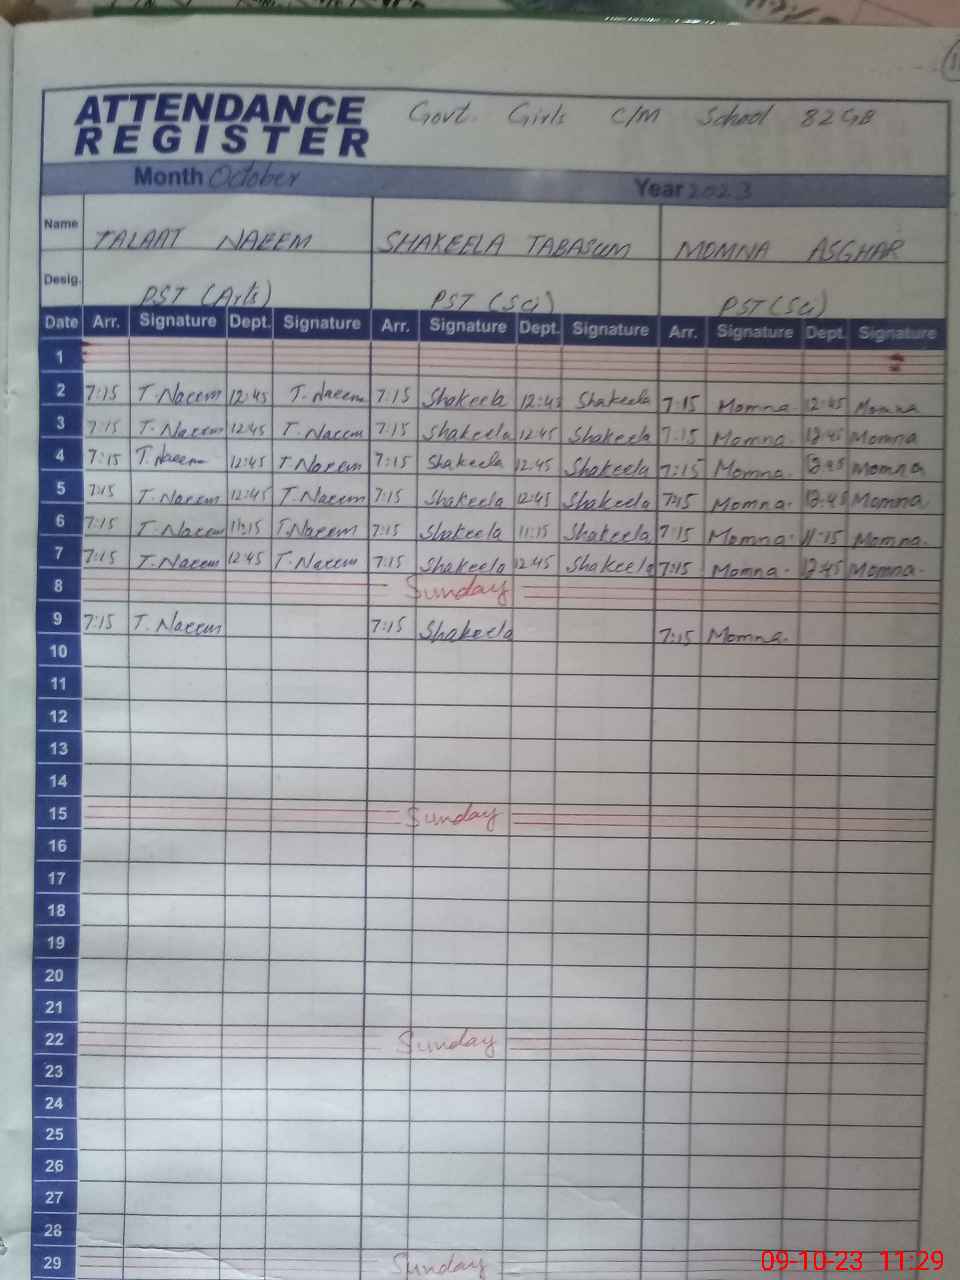 ATTENDANCE
REGISTER
Govt. Girls C/M School 82GB
Month October Year 2023
Name TALAAT NAEEM SHAKEELA TABASUM MOMNA ASGHAR
Desig. PST (Arts) PST (Sci) PST (Sci)
Date Arr. Signature Dept. Signature Arr. Signature Dept. Signature Arr. Signature Dept. Signature
1
2 7:15 T.Naeem 12:45 T.Naeem 7:15 Shakeela 12:45 Shakeela 7:15 Momna. 12:45 Momna
3 7:15 T.Naeem 12:45 T.Naeem 7:15 Shakeela 12:45 Shakeela 7:15 Momna. 12:45 Momna
4 7:15 T.Naeem 12:45 T.Naeem 7:15 Shakeela 12:45 Shakeela 7:15 Momna. 12:45 Momna
5 7:15 T.Naeem 12:45 T.Naeem 7:15 Shakeela 12:45 Shakeela 7:15 Momna. 12:45 Momna.
6 7:15 T.Naeem 11:15 T.Naeem 7:15 Shakeela 11:15 Shakeela 7:15 Momna. 11:15 Momna.
7 7:15 T.Naeem 12:45 T.Naeem 7:15 Shakeela 12:45 Shakeela 7:15 Momna. 12:45 Momna.
8 Sunday
9 7:15 T.Naeem 7:15 Shakeela 7:15 Momna.
10
11
12
13
14
15 Sunday
16
17
18
19
20
21
22 Sunday
23
24
25
26
27
28
29 Sunday
09-10-23 11:29